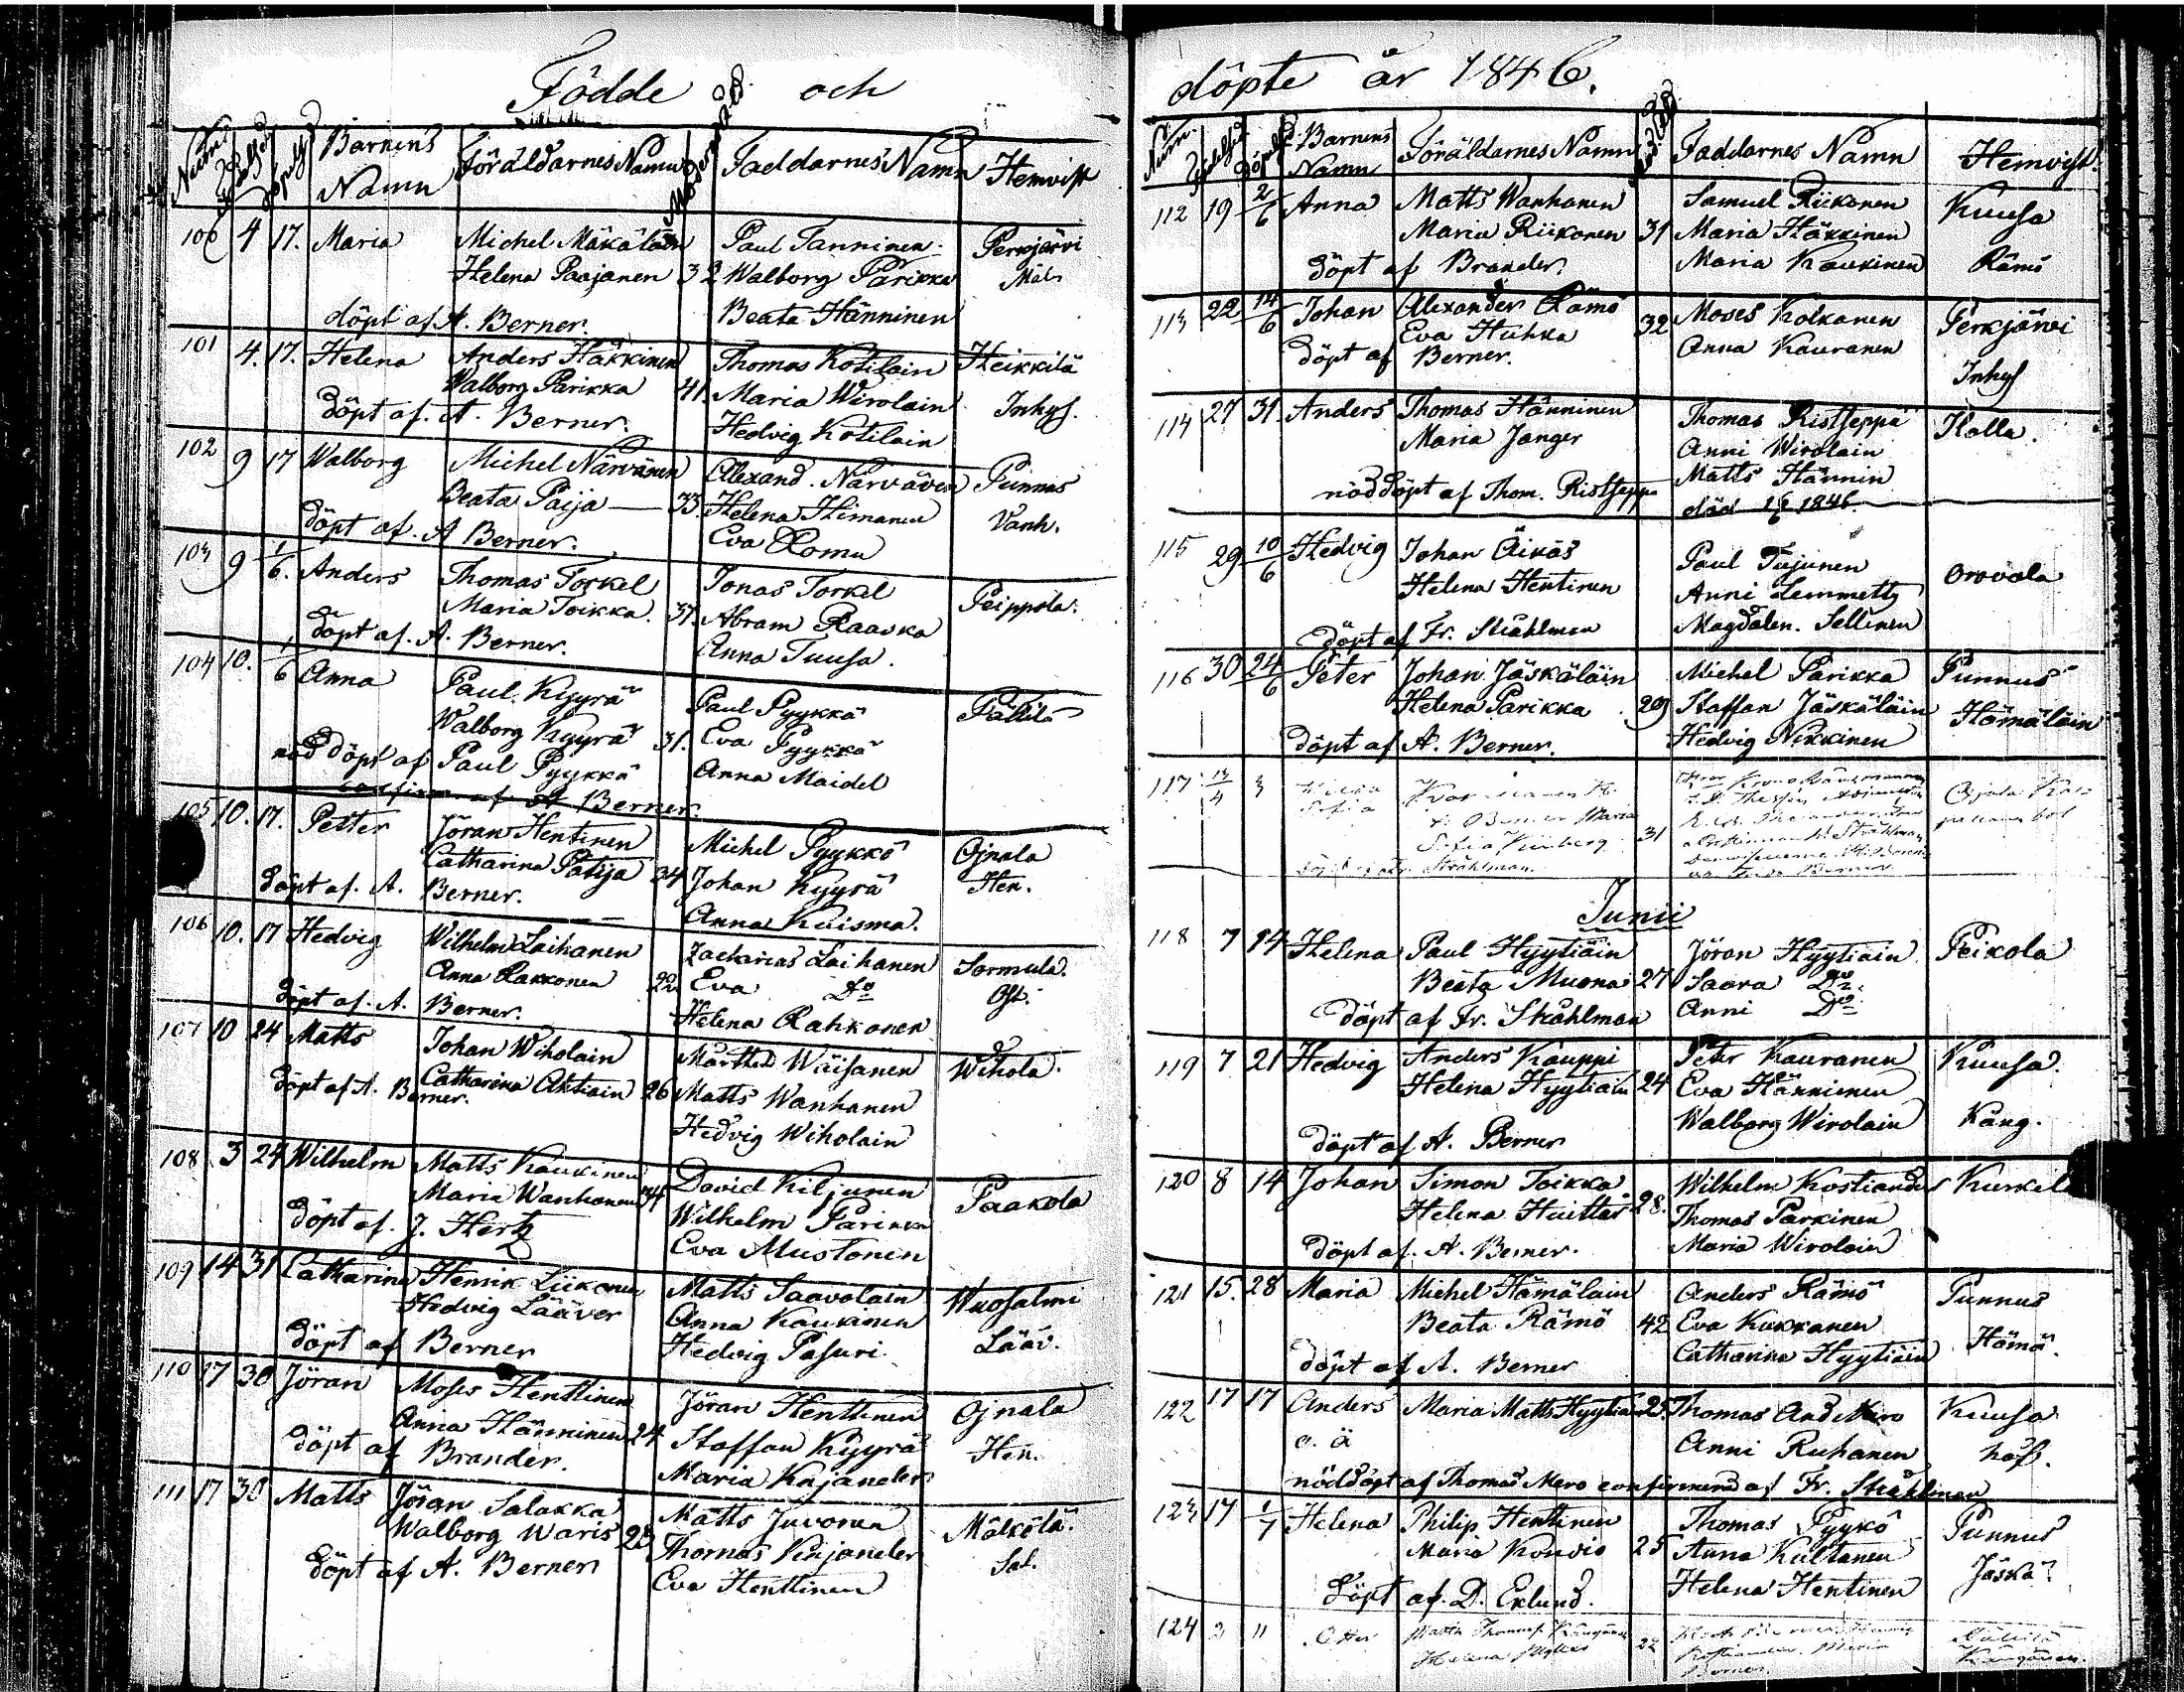 Födde och
Num. Födelsed. Döpelsed. Barnens Namn Föräldarnes Namn Faddarnes Namn Hemvist
100 4 17. Maria Michel Mäkäläin Paul Tanninen Perkjärvi
Helena Paajanen 32 Walborg Parikka Mäk
döpt af A. Berner. Beata Hänninen
101 4. 17. Helena Anders Häkkinen Thomas Kotilain Heikkilä
Walborg Parikka 41. Maria Wirolain Inhys.
döpt af. A. Berner. Hedvig Kotilain
102 9 17 Walborg Michel Närvänen Alexand. Närvänen Punnus
Beata Paija 33. Helena Himanen Vanh.
döpt af. A Berner. Eva Romu
103 9 1/6. Anders Thomas Torkel Jonas Torkel Peippola.
Maria Toikka. 37. Abram Raaska
döpt af. A. Berner. Anna Tuusa.
104 10. 1/6 Anna Paul Kyyrä Paul Pyykkö Pällilä
Walborg Kyyrä 31. Eva Pyykkä
nöd döpt af Paul Pyykkö Anna Maidel
af A Berner.
105 10. 17. Petter Jöran Hentinen Michel Pyykkö Ojnala
Catharina Patija 34 Johan Kyyrä Hen.
döpt af. A. Berner. Anna Kuisma.
106 10. 17 Hedvig Wilhelm Laihanen Zacharias Laihanen Sormula.
Anna Rakkonen 22 Eva Do
döpt af. A. Berner. Helena Rahkonen
107 10 24 Matts Johan Wiholain Märthen Wäisänen Wihola.
Catharina Aktiain 26 Matts Wanhanen
döpt af A. Berner. Hedvig Wiholain
108 3 24 Wilhelm Matts Kaukinen David Kiljunen Paakola
Maria Wanhanen 34 Wilhelm Parikka
döpt af. J. Hertz Eva Mustonen
109 14 31 Catharina Henrik Liikonen Matts Saavolain Wuosalmi
Hedvig Lääver Anna Kaukinen Lääv.
döpt af Berner Hedvig Pasuri
110 17 30 Jöran Moses Henttinen Jöran Henttinen Ojnala
Anna Hänninen 24 Staffan Kyyrä Hen.
döpt af Brander. Maria Kajander
111 17 30 Matts Jöran Salakka Matts Juvonen Mälkölä.
Walborg Waris 23 Thomas Kajander Sal.
döpt af A. Berner Eva Henttinen
döpte år 1846.
Num. Födelsed. Döpelsed. Barnens Namn Föräldarnes Namn Faddarnes Namn Hemvist.
112 19 2/6 Anna Matts Wanhanen Samuel Riikonen Kuusa
Maria Riikonen 31 Maria Häkkinen Rämö
döpt af Brander. Maria Kaukinen
113 22 14/6 Johan Alexander Rämö Moses Kolkanen Perkjärvi
Eva Huhka 32 Anna Kauranen
döpt af Berner. Inhys
114 27 31. Anders Thomas Hänninen Thomas Ristseppä Kalla.
Maria Janger Anni Wirolain
Matts Hännin
nöddöpt af Thom. Ristseppä död 1/6 1846.
115 29 10/6 Hedvig Johan Äikäs Paul Tujunen Oravala
Helena Hentinen Anni Lemmetty
döpt af Fr. Stråhlman Magdalen. Sellinen
116 30 24/6 Peter Johan Jäskäläin Michel Parikka Punnus
Helena Parikka 29 Staffan Jäskäläin Hämäläin
döpt af A. Berner. Hedvig Nikkinen
117 4 3 Sofia Maria
Sofia 31
Stråhlman.
Junii
118 7 14 Helena Paul Hyytiäin Jöran Hyytiäin Peikola
Beata Muona 27 Saara Do
döpt af Fr. Stråhlman Anni Do
119 7 21 Hedvig Anders Kauppi Peter Kauranen Kuusa.
Helena Hyytiäin 24 Eva Hänninen
Walborg Wirolain Käng.
döpt af A. Berner
120 8 14 Johan Simon Toikka Wilhelm Kostiander
Helena Huittar 28. Thomas Parkinen
döpt af. A. Berner. Maria Wirolain
121 15. 28 Maria Michel Hämäläin Anders Rämö Punnus
Beata Rämö 42 Eva Kukkanen Hämä.
döpt af A. Berner Catharina Hyytiäin
122 17 17 Anders Maria Matts Hyytiä 25. Thomas And Mero Kuusa
o. ä Anni Ruhanen
nöddöpt af Thomas Mero confirmerad af Fr. Stråhlman
123 17 1/7 Helena Philip Henttinen Thomas Pyykö Punnus
Maria Kouvio 25 Anna Kultanen Jäskä.
döpt af. D. Eklund. Helena Hentinen
124 2 11 Matts
Helena 22
Berner.